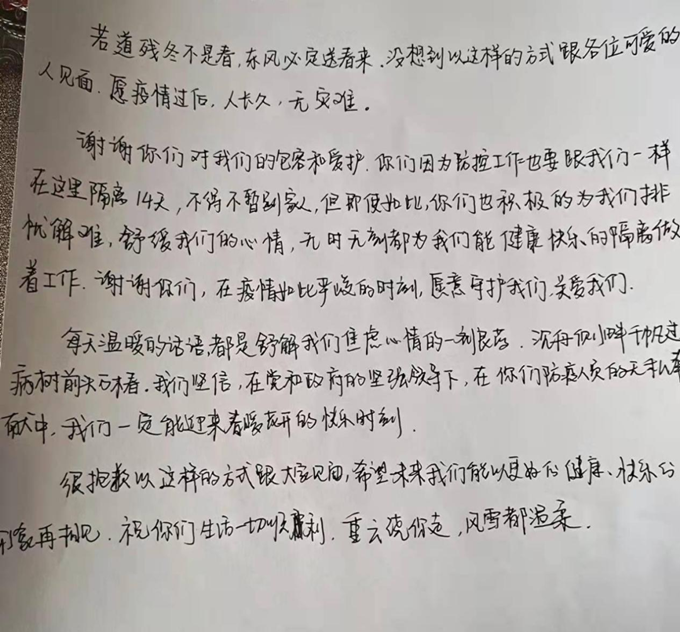 若道残冬不是春,东风必定送春来.没想到以这样的方式跟各位可爱的
人见面.愿疫情过后,人长久,无灾难.
谢谢你们对我们的包容和爱护.你们因为防控工作也要跟我们一样
在这里隔离14天,不得不暂别家人,但即便如此,你们也积极的为我们排
忧解难,舒缓我们的心情,无时无刻都为我们能健康快乐的隔离做
着工作.谢谢你们,在疫情如此严峻的时刻,愿意守护我们,关爱我们.
每天温暖的话语,都是舒解我们焦虑心情的一剂良药.沉舟侧畔千帆过
病树前头万木春.我们坚信,在党和政府的坚强领导下,在你们防疫人员的无私奉
献中,我们一定能迎来春暖花开的快乐时刻.
很抱歉以这样的方式跟大家见面,希望未来我们能以更好的健康、快乐的
形象再相见.祝你们生活一切顺利.重云绕你走,风雪都温柔.